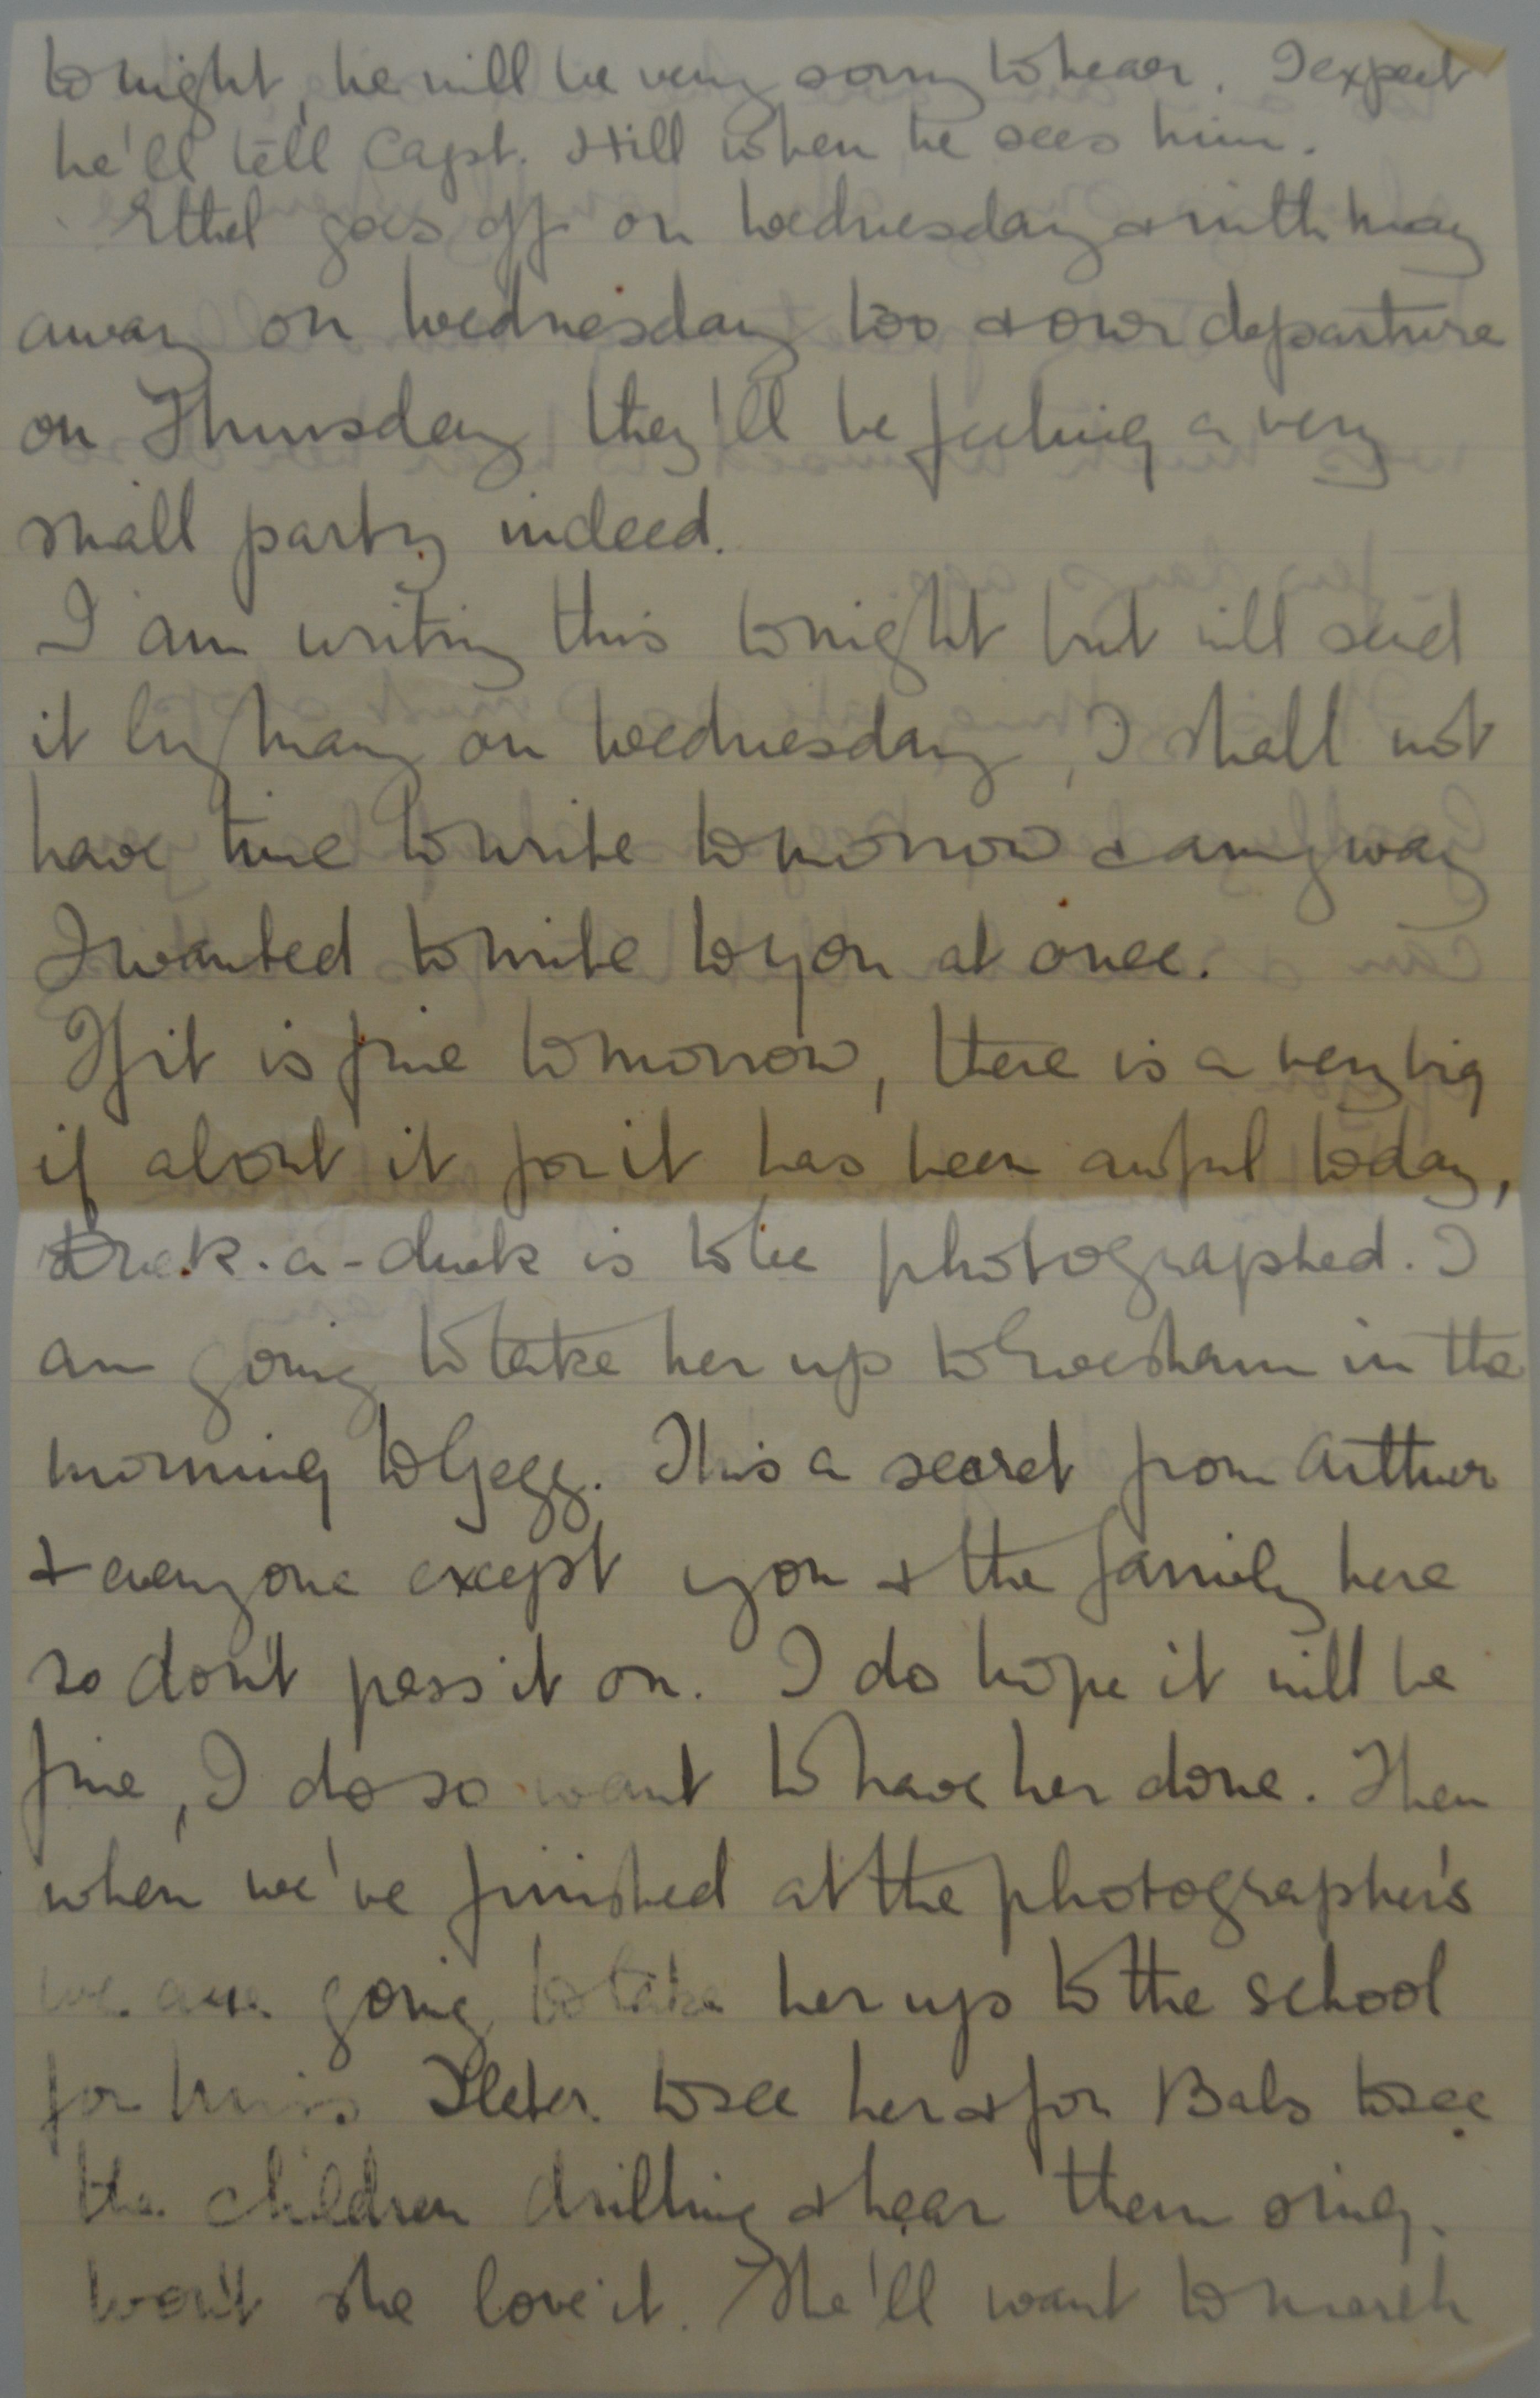 tonight, he will be very sorry to hear. I expect
he'll tell Capt. Hill when he sees him.
Ethel goes off on Wednesday & with May
away on Wednesday too & our departure
on Thursday they'll be feeling a very
small party indeed.
I am writing this tonight but will send
it by May on Wednesday, I shall not
have time to write tomorrow & anyway
I wanted to write to you at once.
If it is fine tomorrow, there is a very big
if about it for it has been awful today,
-a-duck is to be photographed. I
am going to take her up to Evesham in the
morning to Gegg. This a secret from Arthur
& everyone except you & the family here
so don't pass it on. I do hope it will be
fine, I do so want to have her done. Then
when we've finished at the photographer's
we are going to take her up to the school
for Miss to see her & for Babs to see
the children drilling & hear them sing.
Won't she love it. She'll want to march